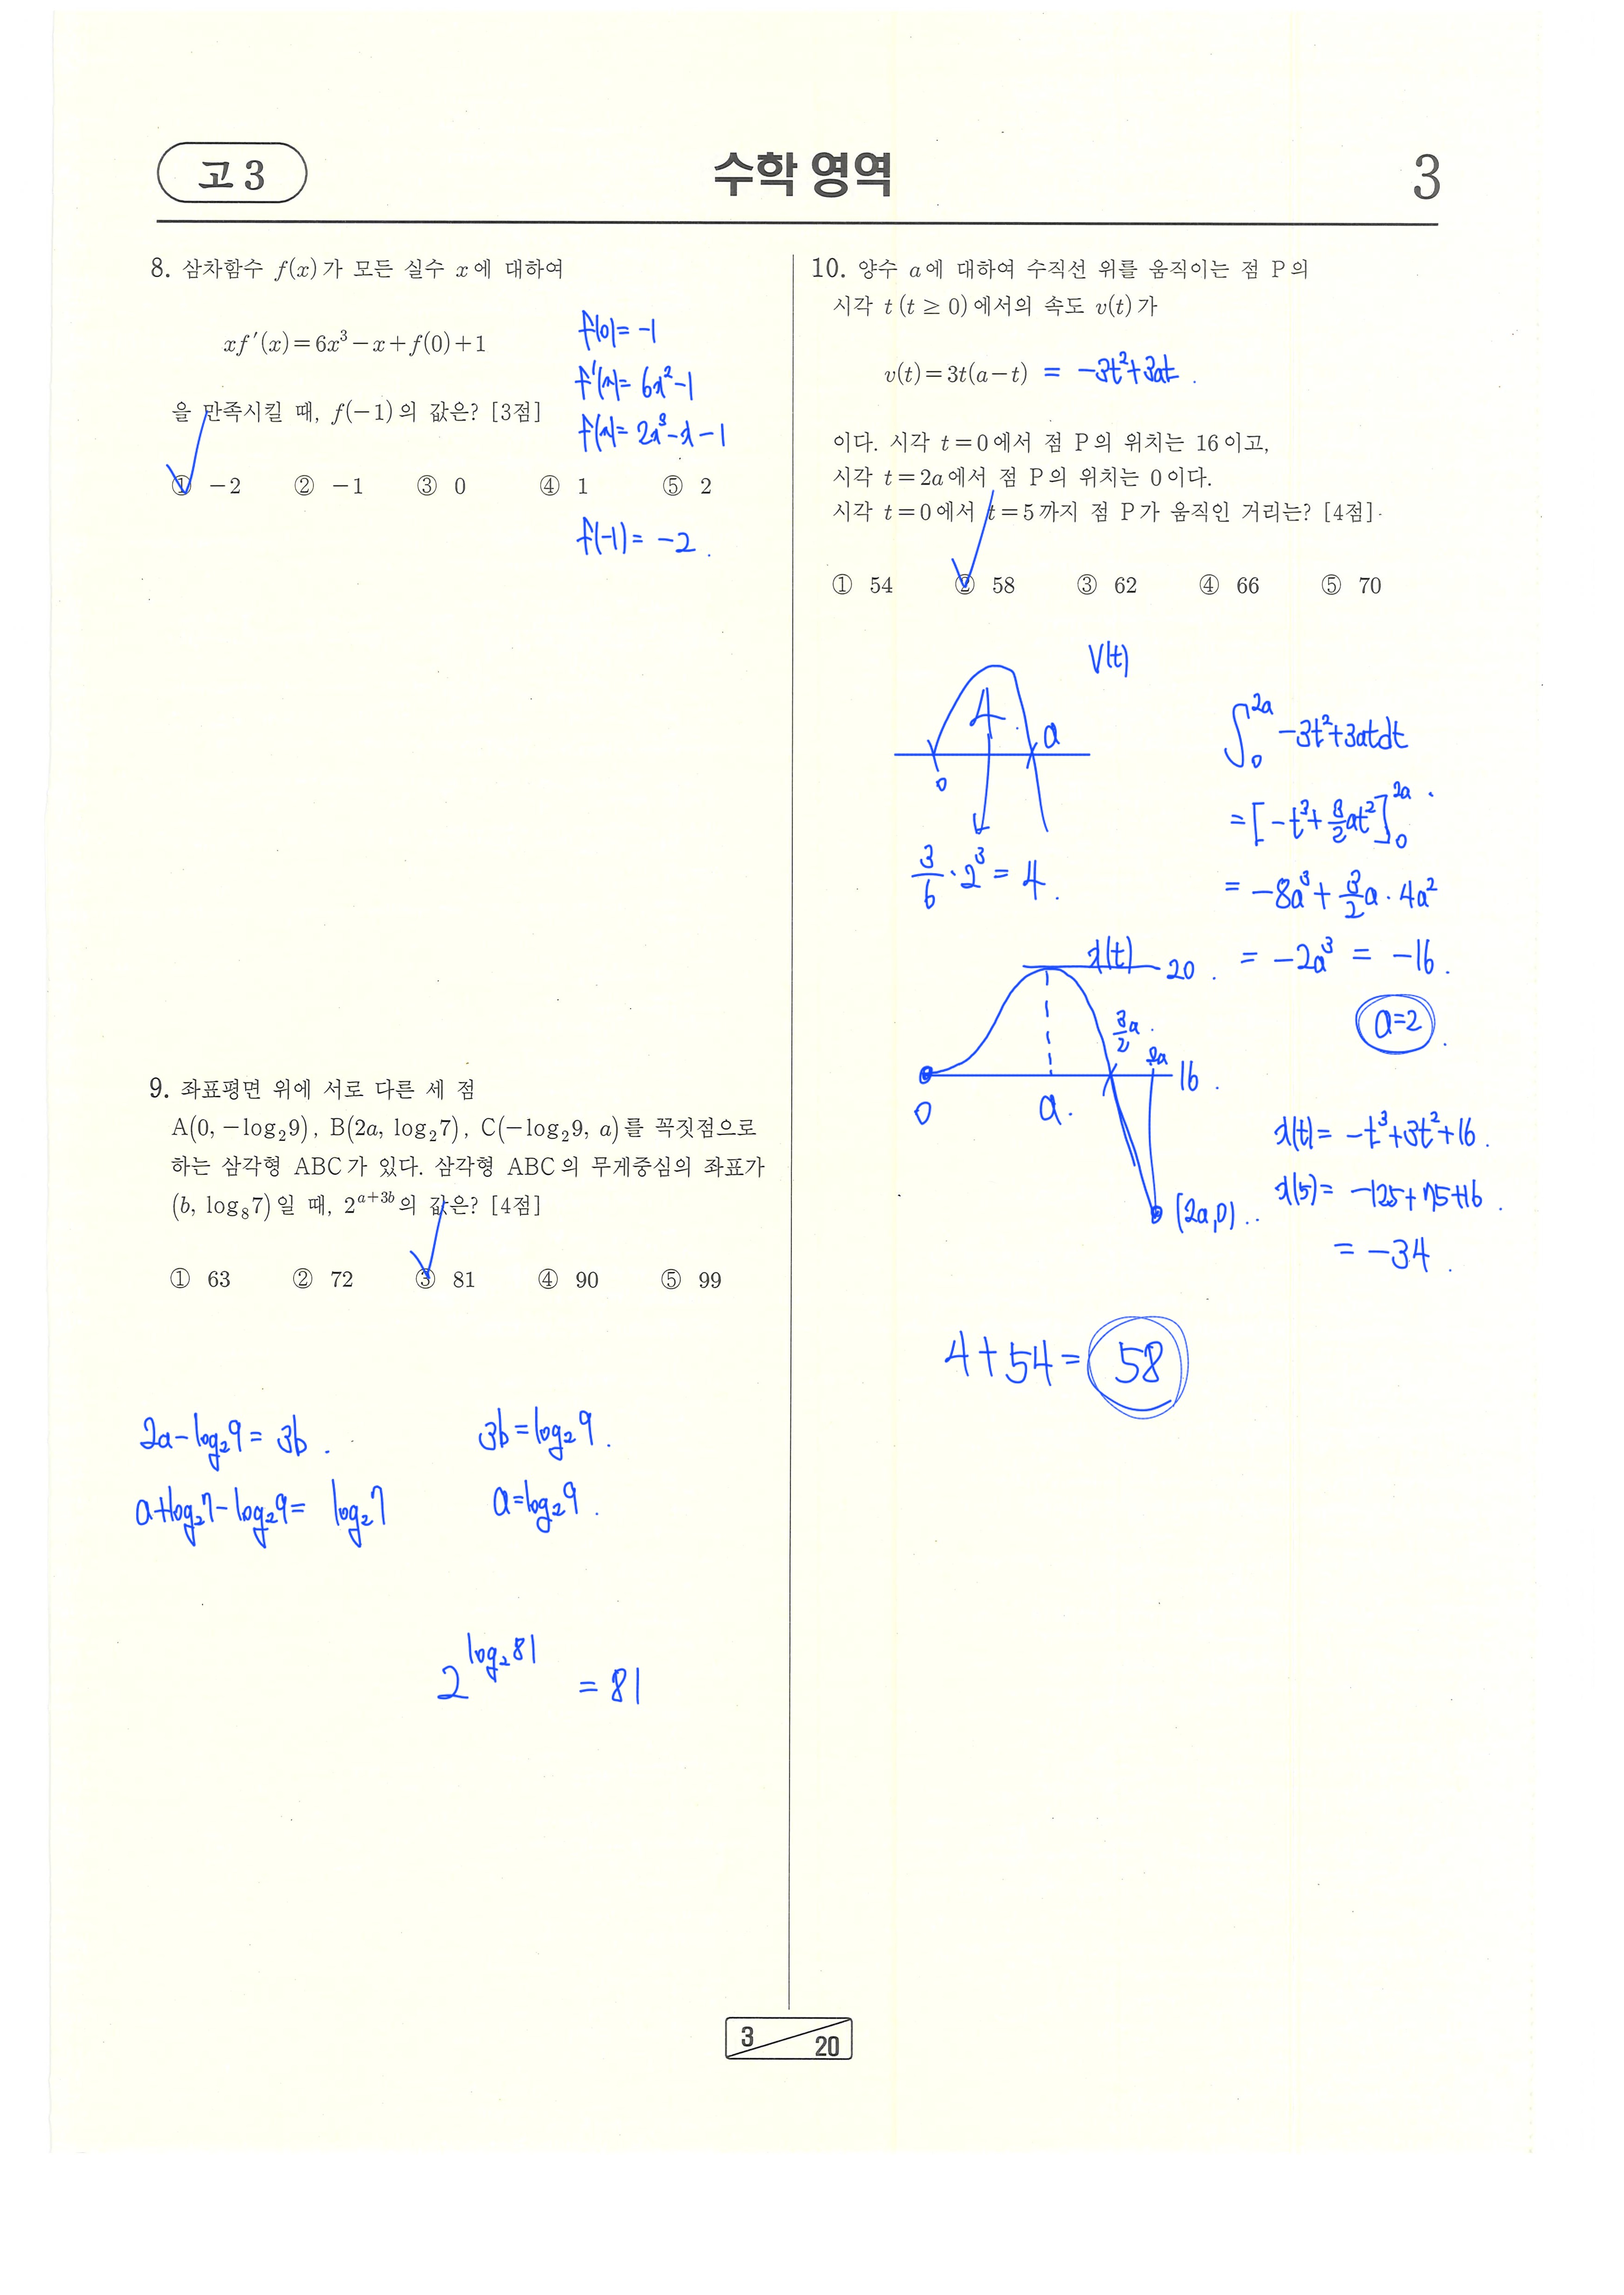 고 3
수학 영역
3
8. 삼차함수 f(x)가 모든 실수 x에 대하여
xf'(x)=6x³-x+f(0)+1
을 만족시킬 때, f(-1)의 값은? [3점]
① -2 ② -1 ③ 0 ④ 1 ⑤ 2
f(0)=-1
f'(x)=6x²-1
f(x)=2x³-x-1
f(-1)=-2.
9. 좌표평면 위에 서로 다른 세 점
A(0, -log₂9), B(2a, log₂7), C(-log₂9, a)를 꼭짓점으로
하는 삼각형 ABC가 있다. 삼각형 ABC의 무게중심의 좌표가
(b, log₈7)일 때, 2^(a+3b)의 값은? [4점]
① 63 ② 72 ③ 81 ④ 90 ⑤ 99
2a-log₂9=3b.
a+log₂7-log₂9=log₂7
3b=log₂9.
a=log₂9.
2^(log₂81) =81
10. 양수 a에 대하여 수직선 위를 움직이는 점 P의
시각 t(t≥0)에서의 속도 v(t)가
v(t)=3t(a-t) = -3t²+3at.
이다. 시각 t=0에서 점 P의 위치는 16이고,
시각 t=2a에서 점 P의 위치는 0이다.
시각 t=0에서 t=5까지 점 P가 움직인 거리는? [4점]
① 54 ② 58 ③ 62 ④ 66 ⑤ 70
V(t)
4
a
0
3/6·2³=4.
∫₀^2a -3t²+3at dt
=[-t³+3/2at²]₀^2a
=-8a³+3/2a·4a²
=-2a³=-16.
a=2.
x(t)
20.
3/2a.
2a
16.
0
a.
(2a,0)..
x(t)=-t³+3t²+16.
x(5)=-125+75+16.
=-34.
4+54=58
3
20